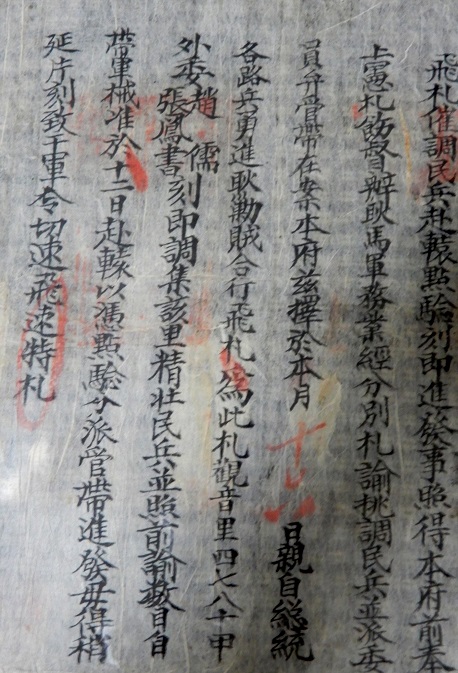 飛札催調民兵赴轅點驗刻即進發事照得本府前奉
上憲札飭督辦耿馬軍務業經分別札諭挑調民兵並派委
員弁管帶在案本府茲擇於本月十八日親自總統
各路兵勇進耿勦賊合行飛札為此札觀音里四七八十甲
外委趙儒張鳳書刻即調集該里精壯民兵並照前諭數目自
帶軍械准於十二日赴轅以憑點驗分派管帶進發毋得稍
延片刻致干軍令切速飛速特札